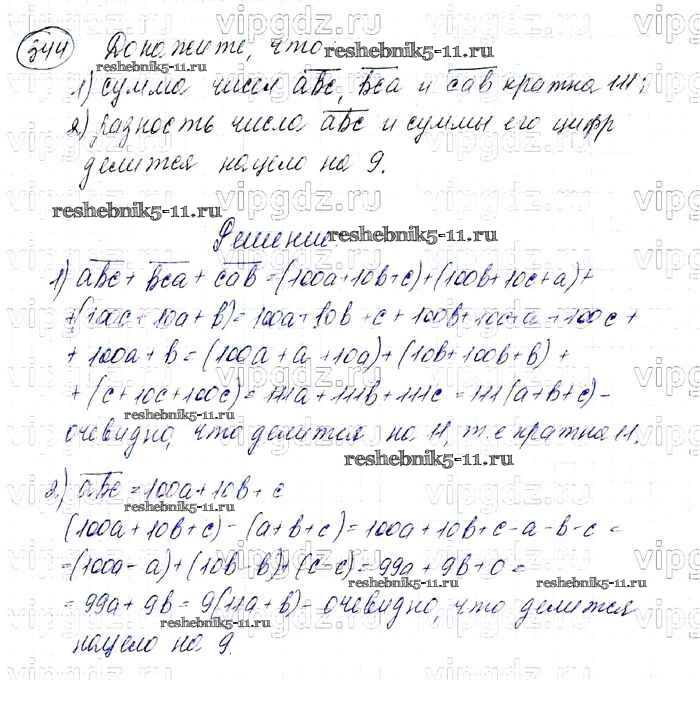 344 Докажите, что
1) сумма чисел a̅b̅c̅, b̅c̅a̅ и c̅a̅b̅ кратна 111;
2) разность числа a̅b̅c̅ и суммы его цифр
делится нацело на 9.
reshebnik5-11.ru
Решение
1) a̅b̅c̅ + b̅c̅a̅ + c̅a̅b̅ = (100a+10b+c)+(100b+10c+a)+
+(100c+10a+b)= 100a+10b+c+100b+10c+a+100c+
+100a+b=(100a+a+10a)+(10b+100b+b)+
+(c+10c+100c)=111a+111b+111c=111(a+b+c)-
очевидно, что делится на 11, т.е кратна 11.
reshebnik5-11.ru
2) a̅b̅c̅ = 100a+10b+c
(100a+10b+c)-(a+b+c)=100a+10b+c-a-b-c=
=(100a-a)+(10b-b)+(c-c)=99a+9b+0=
=99a+9b=9(11a+b)- очевидно, что делится
нацело на 9.